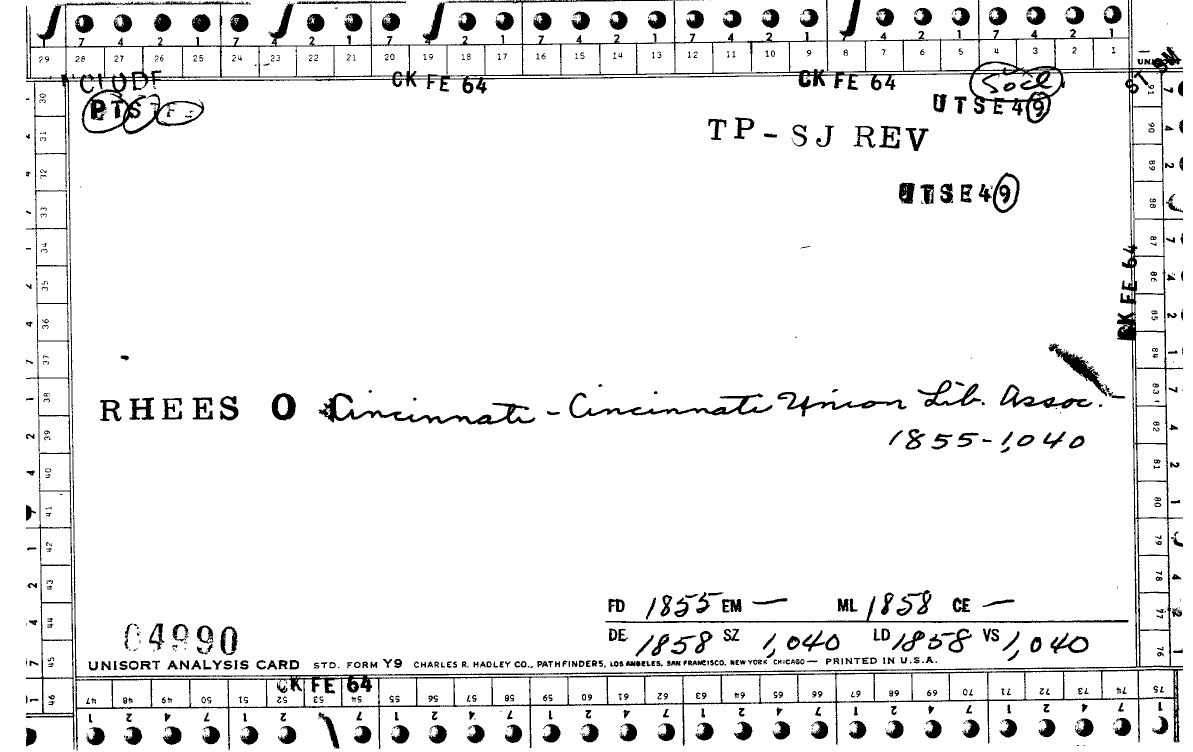 7 4 2 1 7 4 2 1 7 4 2 1 7 4 2 1 7 4 2 1 7 4 2 1
29 28 27 26 25 24 23 22 21 20 19 18 17 16 15 14 13 12 11 10 9 8 7 6 5 4 3 2 1
CK FE 64 CK FE 64 Socl.
PTS UTSE49
TP-SJ REV
UTSE49
CK FE 64
RHEES O Cincinnati - Cincinnati Union Lib. Assoc.
1855-1,040
FD 1855 EM — ML 1858 CE —
DE 1858 SZ 1,040 LD 1858 VS 1,040
04990
UNISORT ANALYSIS CARD STD. FORM Y9 CHARLES R. HADLEY CO., PATHFINDERS, LOS ANGELES, SAN FRANCISCO, NEW YORK CHICAGO — PRINTED IN U.S.A.
CK FE 64
47 48 49 50 51 52 53 54 55 56 57 58 59 60 61 62 63 64 65 66 67 68 69 70 71 72 73 74 75